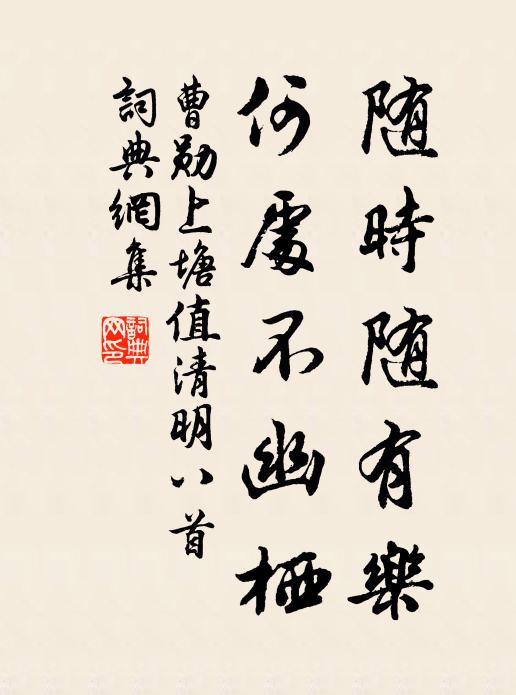 随時随有樂
何處不幽栖
曹勛上塘值清明八首
詞典網集
詞典
网印